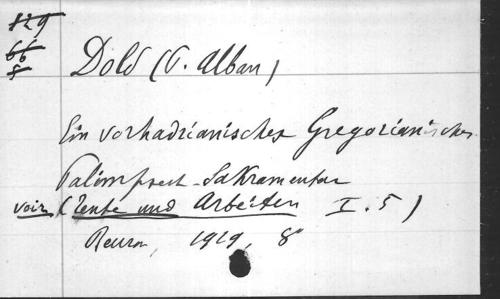 829
66
8
Dold (P. Alban)
Ein vorhadrianisches Gregorianisches
Palimpsest-Sakramentar
voir (Texte und Arbeiten I. 5)
Beuron, 1919, 8°